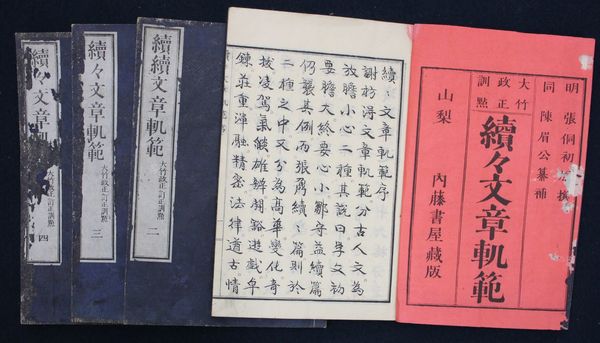 明 張侗初公撰
同 陳眉公纂補
大竹
政正
訓點
續々文章軌範
山梨 內藤書屋藏版
續〻文章軌範序
謝枋得文章軌範分古人文為
放膽小心二種其説曰学文初
要膽大終要心小鄒守益續篇
仍襲其例而張鼐續〻篇則於
二種之中又分為高華變化奇
拔凌駕氣雄辨翻遊戯卓
鍊莊重渾融精密法律遒古情
續續文章軌範 大竹政正訂正訓點 二
續々文章軌範 大竹政正訂正訓點 三
續々文章軌 大竹政正訂正訓點 四